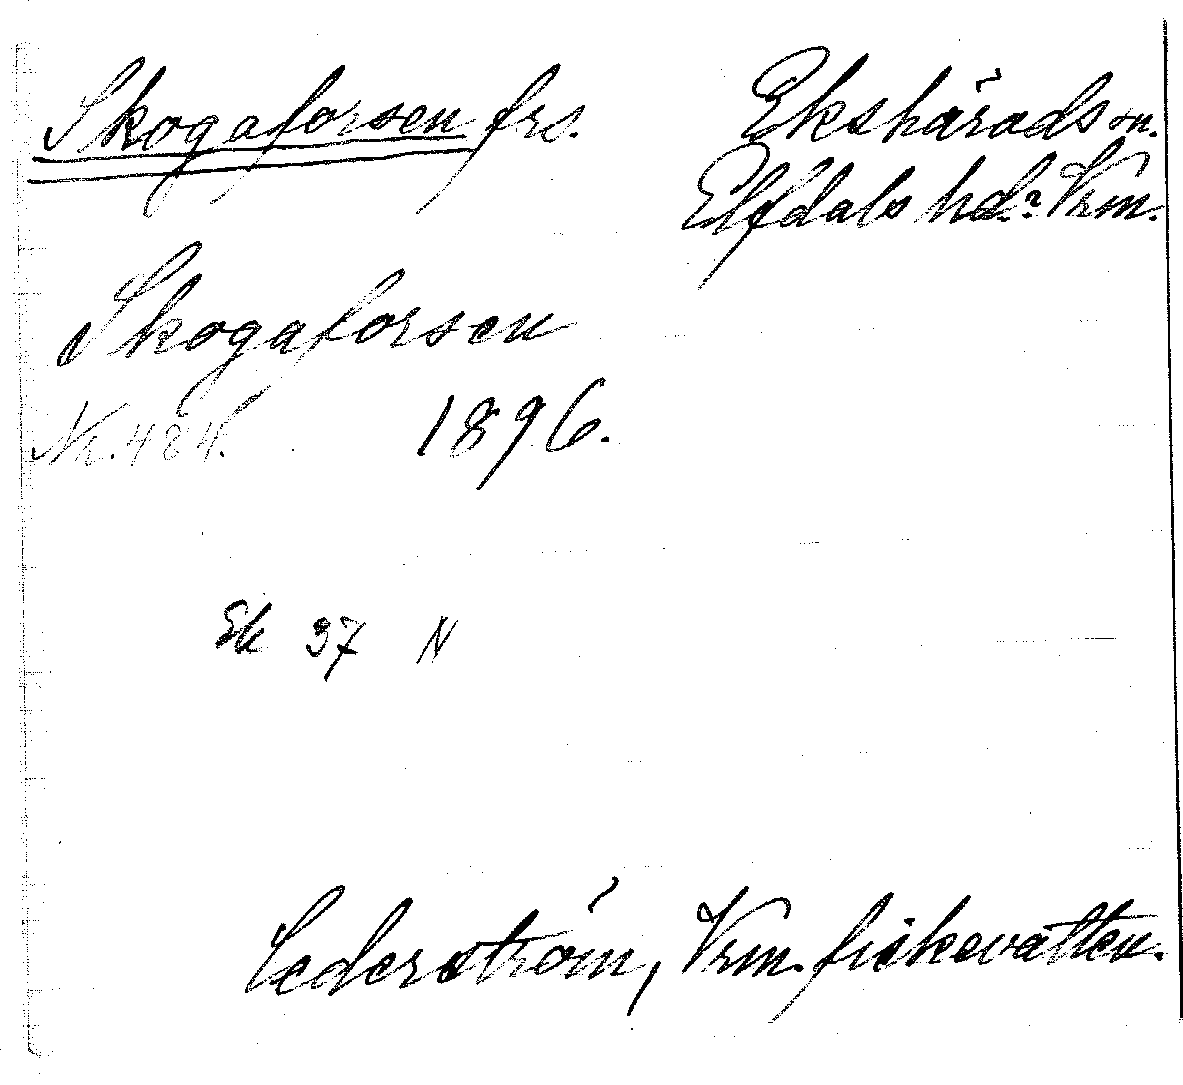 Skogaforsen frs. Ekshärads sn.
Elfdals hd. Vrm.
Skogaforsen
Nr. 484. 1896.
Ek 37 N
Cederström, Vrm. fiskevatten.